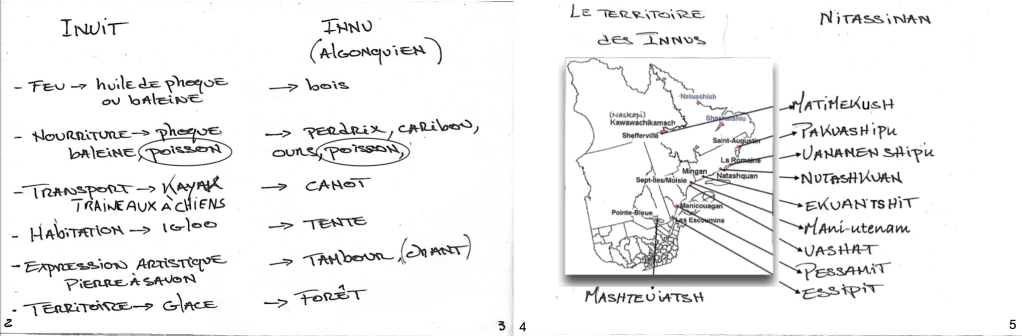 INUIT
INNU
(ALGONQUIEN)
- FEU → huile de phoque → bois
ou baleine
- NOURRITURE → phoque → PERDRIX, CARIBOU,
BALEINE, POISSON OURS, POISSON,
- TRANSPORT → KAYAK → CANOT
TRAINEAUX À CHIENS
- HABITATION → IGLOO → TENTE
- EXPRESSION ARTISTIQUE → TAMBOUR, (CHANT)
PIERRE À SAVON
- TERRITOIRE → GLACE → FORÊT
2
3
LE TERRITOIRE
des INNUS
NITASSINAN
Natuashish
(Naskapi)
Kawawachikamach
Sheshatshiu
Schefferville
Saint-Augustin
La Romaine
Mingan
Natashquan
Sept-Iles/Moisie
Manicouagan
Pointe-Bleue
Les Escoumins
MATIMEKUSH
PAKUASHIPU
UANAMEN SHIPU
NUTASHKUAN
EKUANTSHIT
Mani-utenam
UASHAT
PESSAMIT
ESSIPIT
MASHTEUIATSH
4
5